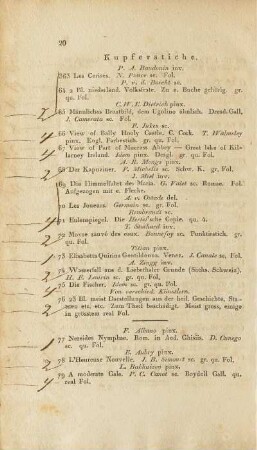 20
Kupferstiche.
P. A. Baudouin inv.
363 Les Cerises. N. Ponce sc. Fol.
P. v. d. Borcht sc.
64 2 Bl. niederländ. Volksfeste. Zu e. Roche gehörig. gr.
qu. Fol.
C. W. E. Dietrich pinx.
2 65 Männliches Brustbild, dem Ugolino ähnlich. Dresd. Gall.
J. Camerata sc. Fol.
F. Jukes sc.
4 66 View of Bally Hooly Castle, C. Cock. T. Walmsley
pinx. Engl. Farbestich. gr. qu. Fol.
67 View of Part of Mucross Abbey — Great lake of Kil-
larney Ireland. Idem pinx. Desgl. gr. qu. Fol.
A. R. Mengs pinx.
68 Der Kapuziner. F. Michelis sc. Schw. K. gr. Fol.
J. Miel inv.
69 Die Himmelfahrt der Maria. G. Valet sc. Romae. Fol.
Aufgezogen mit e. Flecke.
A. v. Ostade del.
70 Les Joueurs. Germain sc. gr. Fol.
Rembrandt sc.
71 Eulenspiegel. Die Copie. qu. 4.
T. Stothard inv.
2 72 Moyse sauvé des eaux. Bonnefoy sc. Punktierstich. gr.
qu. Fol.
Titian pinx.
73 Elisabetta Quirina Gentildonna Venez. J. Canale sc. Fol.
A. Zingg inv.
2 74 Wasserfall aus d. Liebethaler Grunde (Sächs. Schweiz).
H. F. Laurin sc. gr. qu. Fol.
2 75 Die Fischer. Idem sc. gr. qu. Fol.
Von verschied. Künstlern.
4 76 23 Bl. meist Darstellungen aus der heil. Geschichte. Sta-
tuen etc. etc. Zum Theil beschädigt. Meist gross, einige
in grösstem real Fol.
F. Albano pinx.
1 77 Nereides Nymphae. Rom. in Aed. Ghisiis. D. Cunego
sc. qu. Fol.
E. Aubry pinx.
2 78 L'Heureuse Nouvelle. J. B. Simonet sc. gr. qu. Fol.
L. Bakhuizen pinx.
4 79 A moderate Gale. P. C. Canot sc. Boydell Gall. qu.
real Fol.